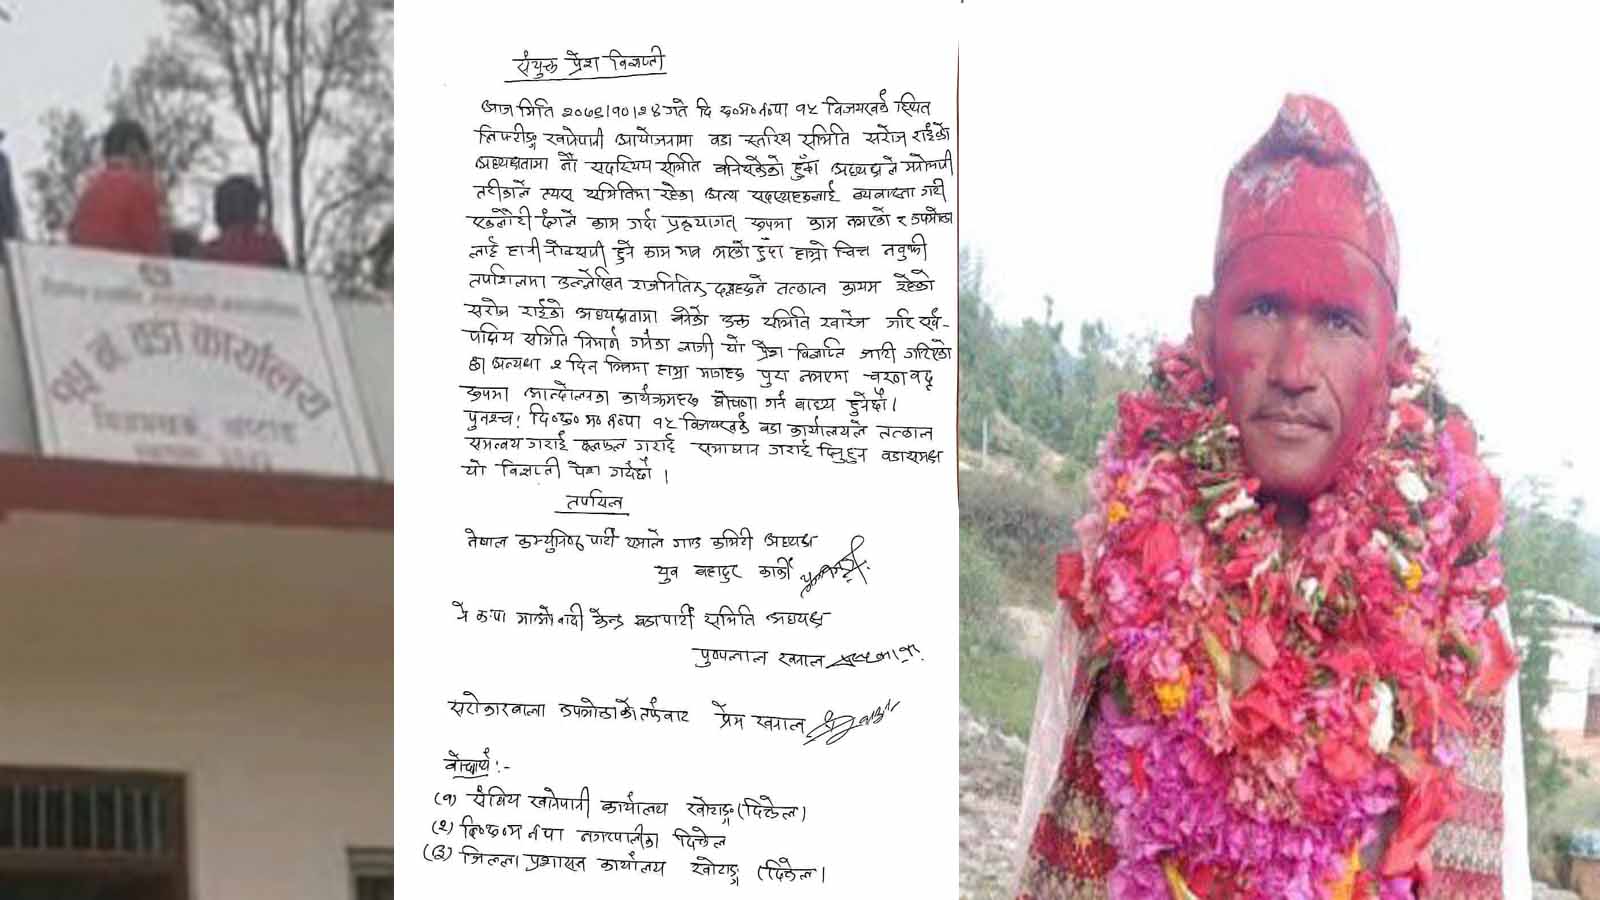 १५ नं. वडा कार्यालय
संयुक्त प्रेश विज्ञप्ती
आज मिति २०७९।१०।२४ गते दि.रु.म.न.पा १५ विजयखर्क स्थित
खानेपानी आयोजनामा वडा स्तरिय समिति सरोज राईको
अध्यक्षतामा नौ सदस्यिय समिति बनिसकेको हुँदा अध्यक्षले मनोमानी
तरीकाले त्यस समितिमा रहेका अन्य सदस्यहरुलाई गरी
एकलौटी ढंगले काम गर्दा प्रकृयागत रुपमा काम नभएको र उपभोक्ता
लाई हानी नोक्सानी हुने काम मात्र भएको हुँदा हाम्रो चित्त नबुझी
तपशिलमा उल्लेखित राजनितिक दलहरुले तत्काल कायम रहेको
सरोज राईको अध्यक्षतामा बनेको उक्त समिति खारेज गरि सर्व-
पक्षिय समिति निर्माण गर्नका लागी यो प्रेश विज्ञप्ति जारी गरिएको
छ। अन्यथा २ दिन भित्रमा हाम्रा मागहरु पुरा नभएमा चरणवद्द
रुपमा आन्दोलनका कार्यक्रमहरु घोषणा गर्न वाध्य हुनेछौं।
पुनश्च: दि.रु.म.न.पा १५ विजयखर्क वडा कार्यालयले तत्काल
समन्वय गराई छलफल गराई समाधान गराई दिनुहुन वडासमक्ष
यो विज्ञप्ती पेश गर्दछौं।
तपसिल
नेपाल कम्युनिष्ट पार्टी एमाले गाउ कमिटी अध्यक्ष
युव बहादुर कार्की
ने.क.पा माओवादी केन्द्र वडापार्टी समिति अध्यक्ष
पुण्पलाल खपाल
सरोकारवाला उपभोक्ताको तर्फवाट प्रेम खपाल
वोधार्थ:-
(१) खानेपानी कार्यालय खोटाङ्ग (दिक्तेल)
(२) दि.रु.म न.पा नगरपालीका दिक्तेल
(३) जिल्ला प्रशासन कार्यालय खोटाङ्ग (दिक्तेल)